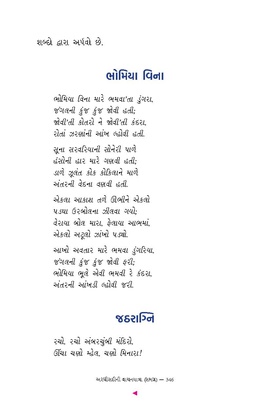 શબ્દો દ્વારા અર્પવો છે.
ભોમિયા વિના
ભોમિયા વિના મારે ભમવા'તા ડુંગરા,
જંગલની કુંજ કુંજ જોવી હતી;
જોવી'તી કોતરો ને જોવી'તી કંદરા,
રોતાં ઝરણાંની આંખ લ્હોવી હતી.
સૂના સરવરિયાની સોનેરી પાળે
હંસોની હાર મારે ગણવી હતી;
ડાળે ઝૂલંત કોક કોકિલાને માળે
અંતરની વેદના વણવી હતી.
એકલા આકાશ તળે ઊભીને એકલો
પડઘા ઉરબોલના ઝીલવા ગયો;
વેરાયા બોલ મારા, ફેલાયા આભમાં,
એકલો અટૂલો ઝાંખો પડ્યો.
આખો અવતાર મારે ભમવા ડુંગરિયા,
જંગલની કુંજ કુંજ જોવી ફરી;
ભોમિયા ભૂલે એવી ભમવી રે કંદરા,
અંતરની આંખડી લ્હોવી જરી.
જઠરાગ્નિ
રચો, રચો અંબરચુંબી મંદિરો,
ઊંચા ચણો મ્હેલ, ચણો મિનારા!